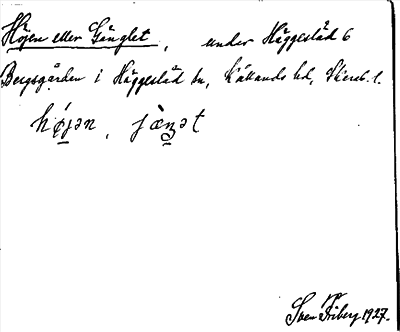 Höjen eller Gänglet, under Häggesled 6
Bergsgården i Häggesled sn, Kållands hd, Skarab. l.
hø̀jən, jæ̀ŋət
Sven Friberg 1927.